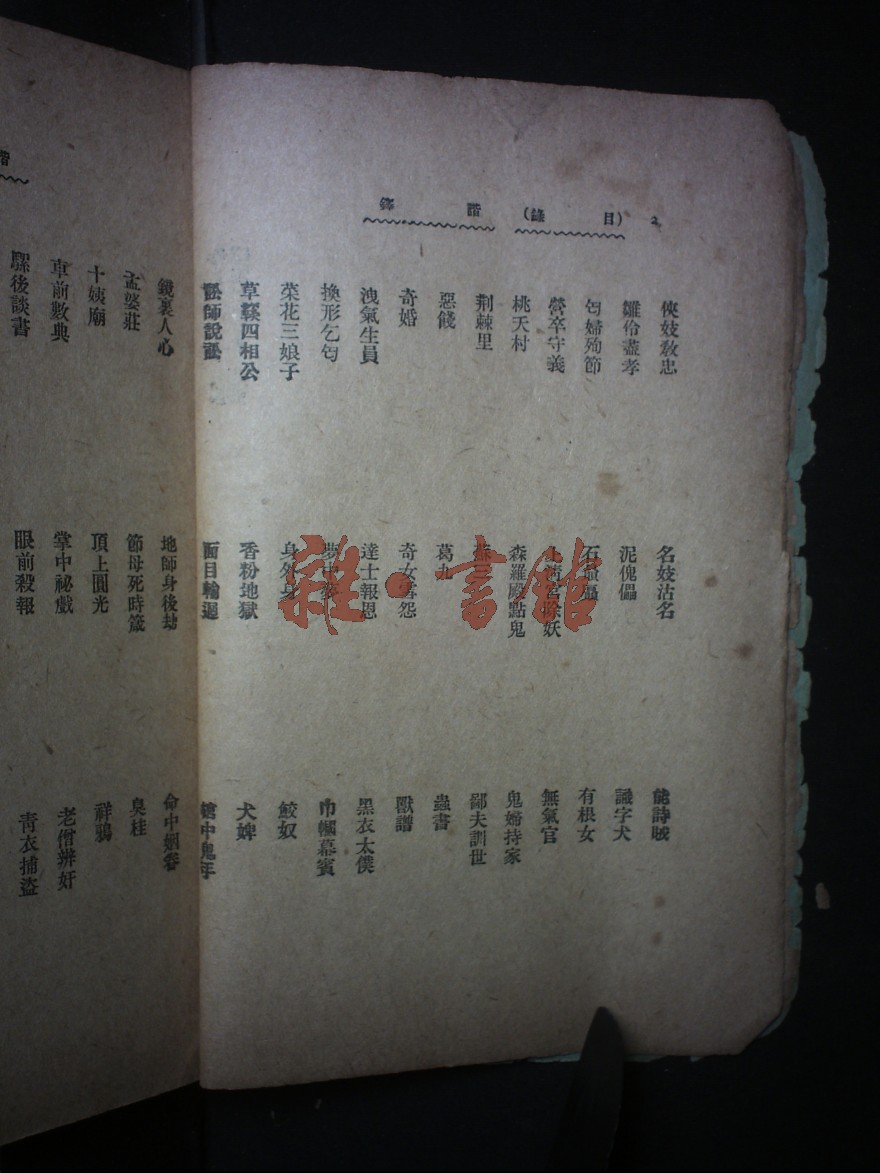 2 (目錄) 諧鐸
俠妓教忠
雛伶盡孝
丐婦殉節
營卒守義
桃夭村
荆棘里
惡餞
奇婚
洩氣生員
換形乞丐
菜花三娘子
草鞋四相公
訟師說訟
鏡裏人心
孟婆莊
十姨廟
車前數典
騾後談書
名妓沽名
泥傀儡
石贔屭
上清宮除妖
森羅殿點鬼
蘇三
葛九
奇女雪怨
達士報恩
夢中夢
身外身
香粉地獄
面目輪迴
地師身後劫
節母死時箴
頂上圓光
掌中祕戲
眼前殺報
能詩賊
識字犬
有根女
無氣官
鬼婦持家
鄙夫訓世
蟲書
獸譜
黑衣太僕
巾幗幕賓
鮫奴
犬婢
命中姻眷
臭桂
祥鴉
老僧辨奸
青衣捕盜
雜·書館